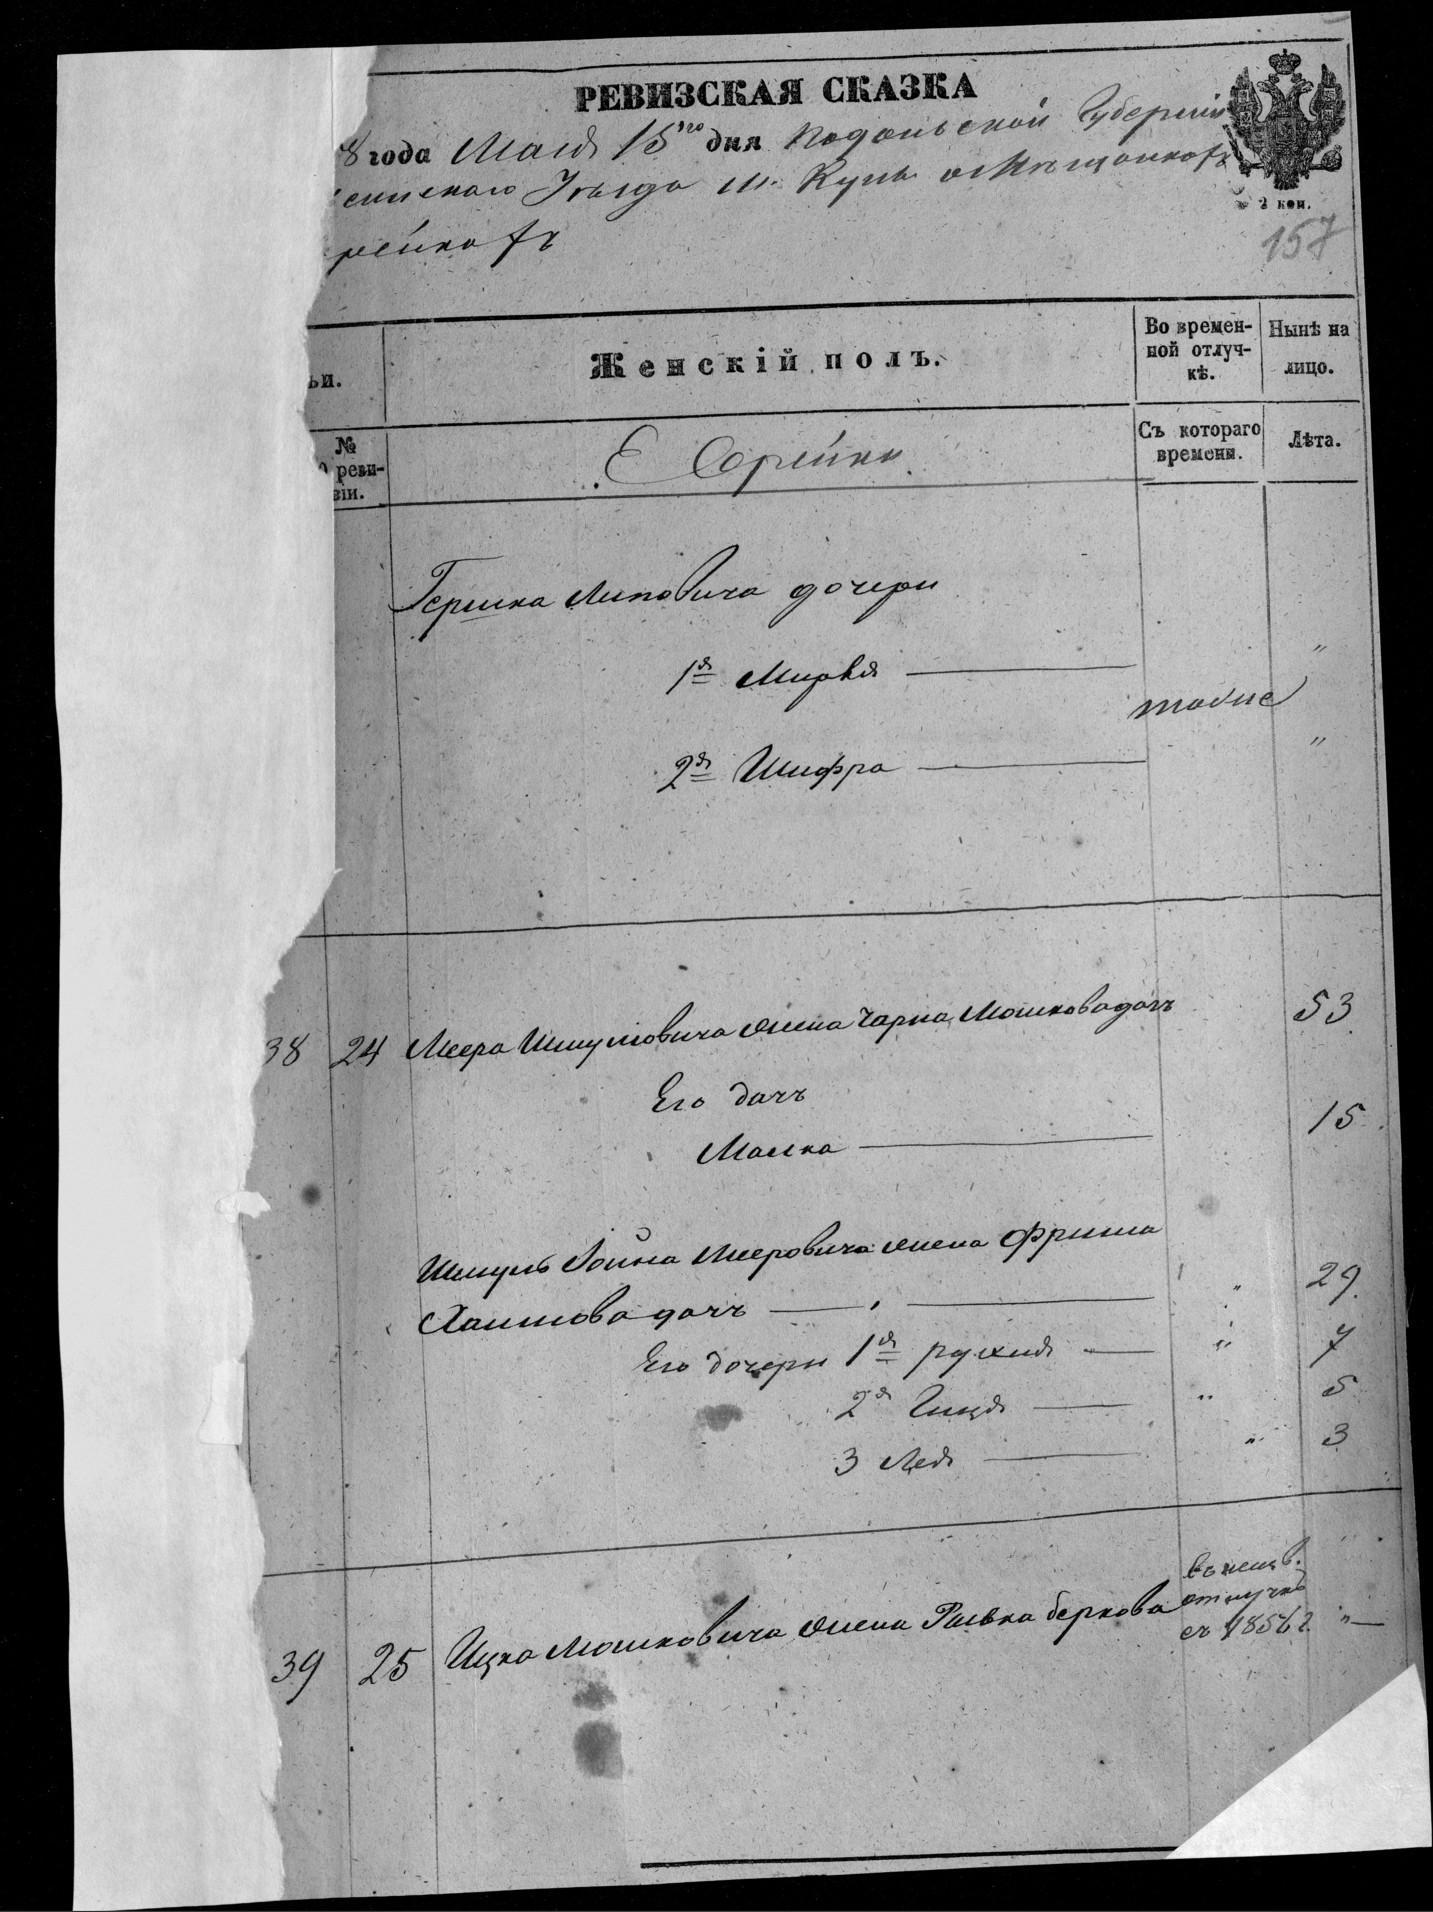 РЕВИЗСКАЯ СКАЗКА
8 года Мая 15го дня Подольской Губерніи
енскаго Уѣзда м. Купль о Мѣщанахъ
рейкахъ
2 коп.
157
ьи.
Женскій полъ.
Во времен-
ной отлуч-
кѣ.
Нынѣ на
лицо.
№
реви-
зіи.
Еврейки
Съ котораго
времени.
Лѣта.
Гершка Липовича дочери
1я Мирвя — "
тоже
2я Шифра — "
38 24 Меера Шмулiовича жена Чарна Мошкова дочь 53
Его дочь
Малка — 15
Шмуль Іойна Мееровича жена Фрима
Хаимова дочь — " 29
Его дочери 1я Рухля — " 7
2я Гиця — " 5
3 Лея — " 3
въ неизв.
отлучкѣ
съ 1856 г. "—
39 25 Ицка Мошковича жена Ривка Беркова